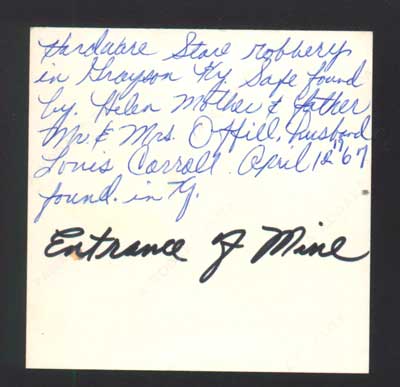 Hardware Store robbery
in Grayson Ky. Safe found
by. Helen Mother & father
Mr. & Mrs. Offill, husband
Louis Carroll. April 12 '67
found. in Ky.
Entrance of Mine